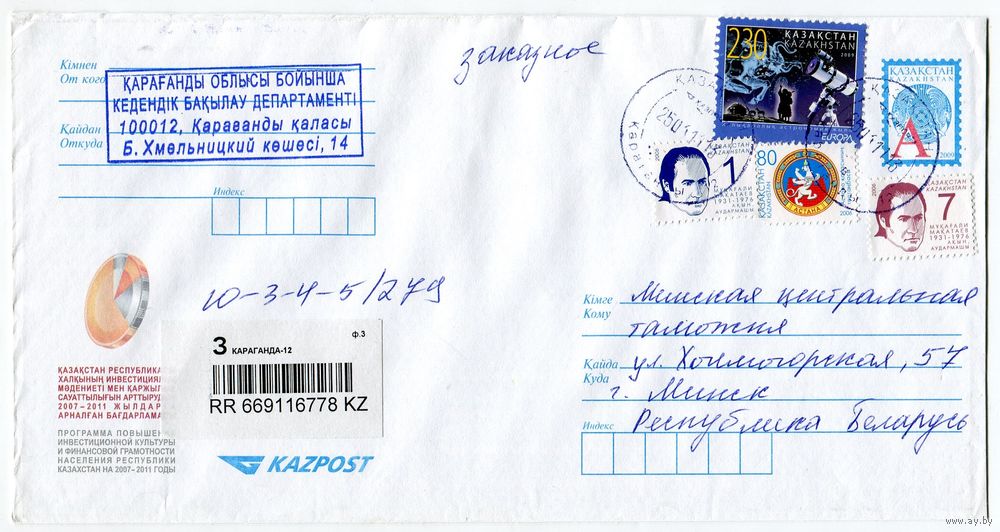 Кімнен
От кого
ҚАРАҒАНДЫ ОБЛЫСЫ БОЙЫНША
КЕДЕНДІК БАҚЫЛАУ ДЕПАРТАМЕНТІ
100012, Қарағанды қаласы
Б. Хмельницкий көшесі, 14
Қайдан
Откуда
Индекс
заказное
230
ҚАЗАҚСТАН
KAZAKHSTAN
2009
EUROPA
ҚАЗАҚСТАН
KAZAKHSTAN
А
2009
1
МҰҚАҒАЛИ
МАҚАТАЕВ
1931-1976
АҚЫН,
АУДАРМАШЫ
80
ҚАЗАҚСТАН
KAZAKHSTAN
АСТАНА
2006
2006
ҚАЗАҚСТАН
KAZAKHSTAN
7
МҰҚАҒАЛИ
МАҚАТАЕВ
1931-1976
АҚЫН,
АУДАРМАШЫ
ю-3-4-5/279
ф.3
З КАРАГАНДА-12
RR 669116778 KZ
KAZPOST
ҚАЗАҚСТАН РЕСПУБЛИКА
ХАЛҚЫНЫҢ ИНВЕСТИЦИЯ
МӘДЕНИЕТІ МЕН ҚАРЖЫЛ
САУАТТЫЛЫҒЫН АРТТЫРУД
2007-2011 ЖЫЛДАР
АРНАЛҒАН БАҒДАРЛАМА
ПРОГРАММА ПОВЫШЕН
ИНВЕСТИЦИОННОЙ КУЛЬТУРЫ
И ФИНАНСОВОЙ ГРАМОТНОСТИ
НАСЕЛЕНИЯ РЕСПУБЛИКИ
КАЗАХСТАН НА 2007-2011 ГОДЫ
Кімге Минская центральная
Кому таможня
Қайда ул. Хоямогорская, 57
Куда г. Минск
Индекс Республика Беларусь
www.ay.by